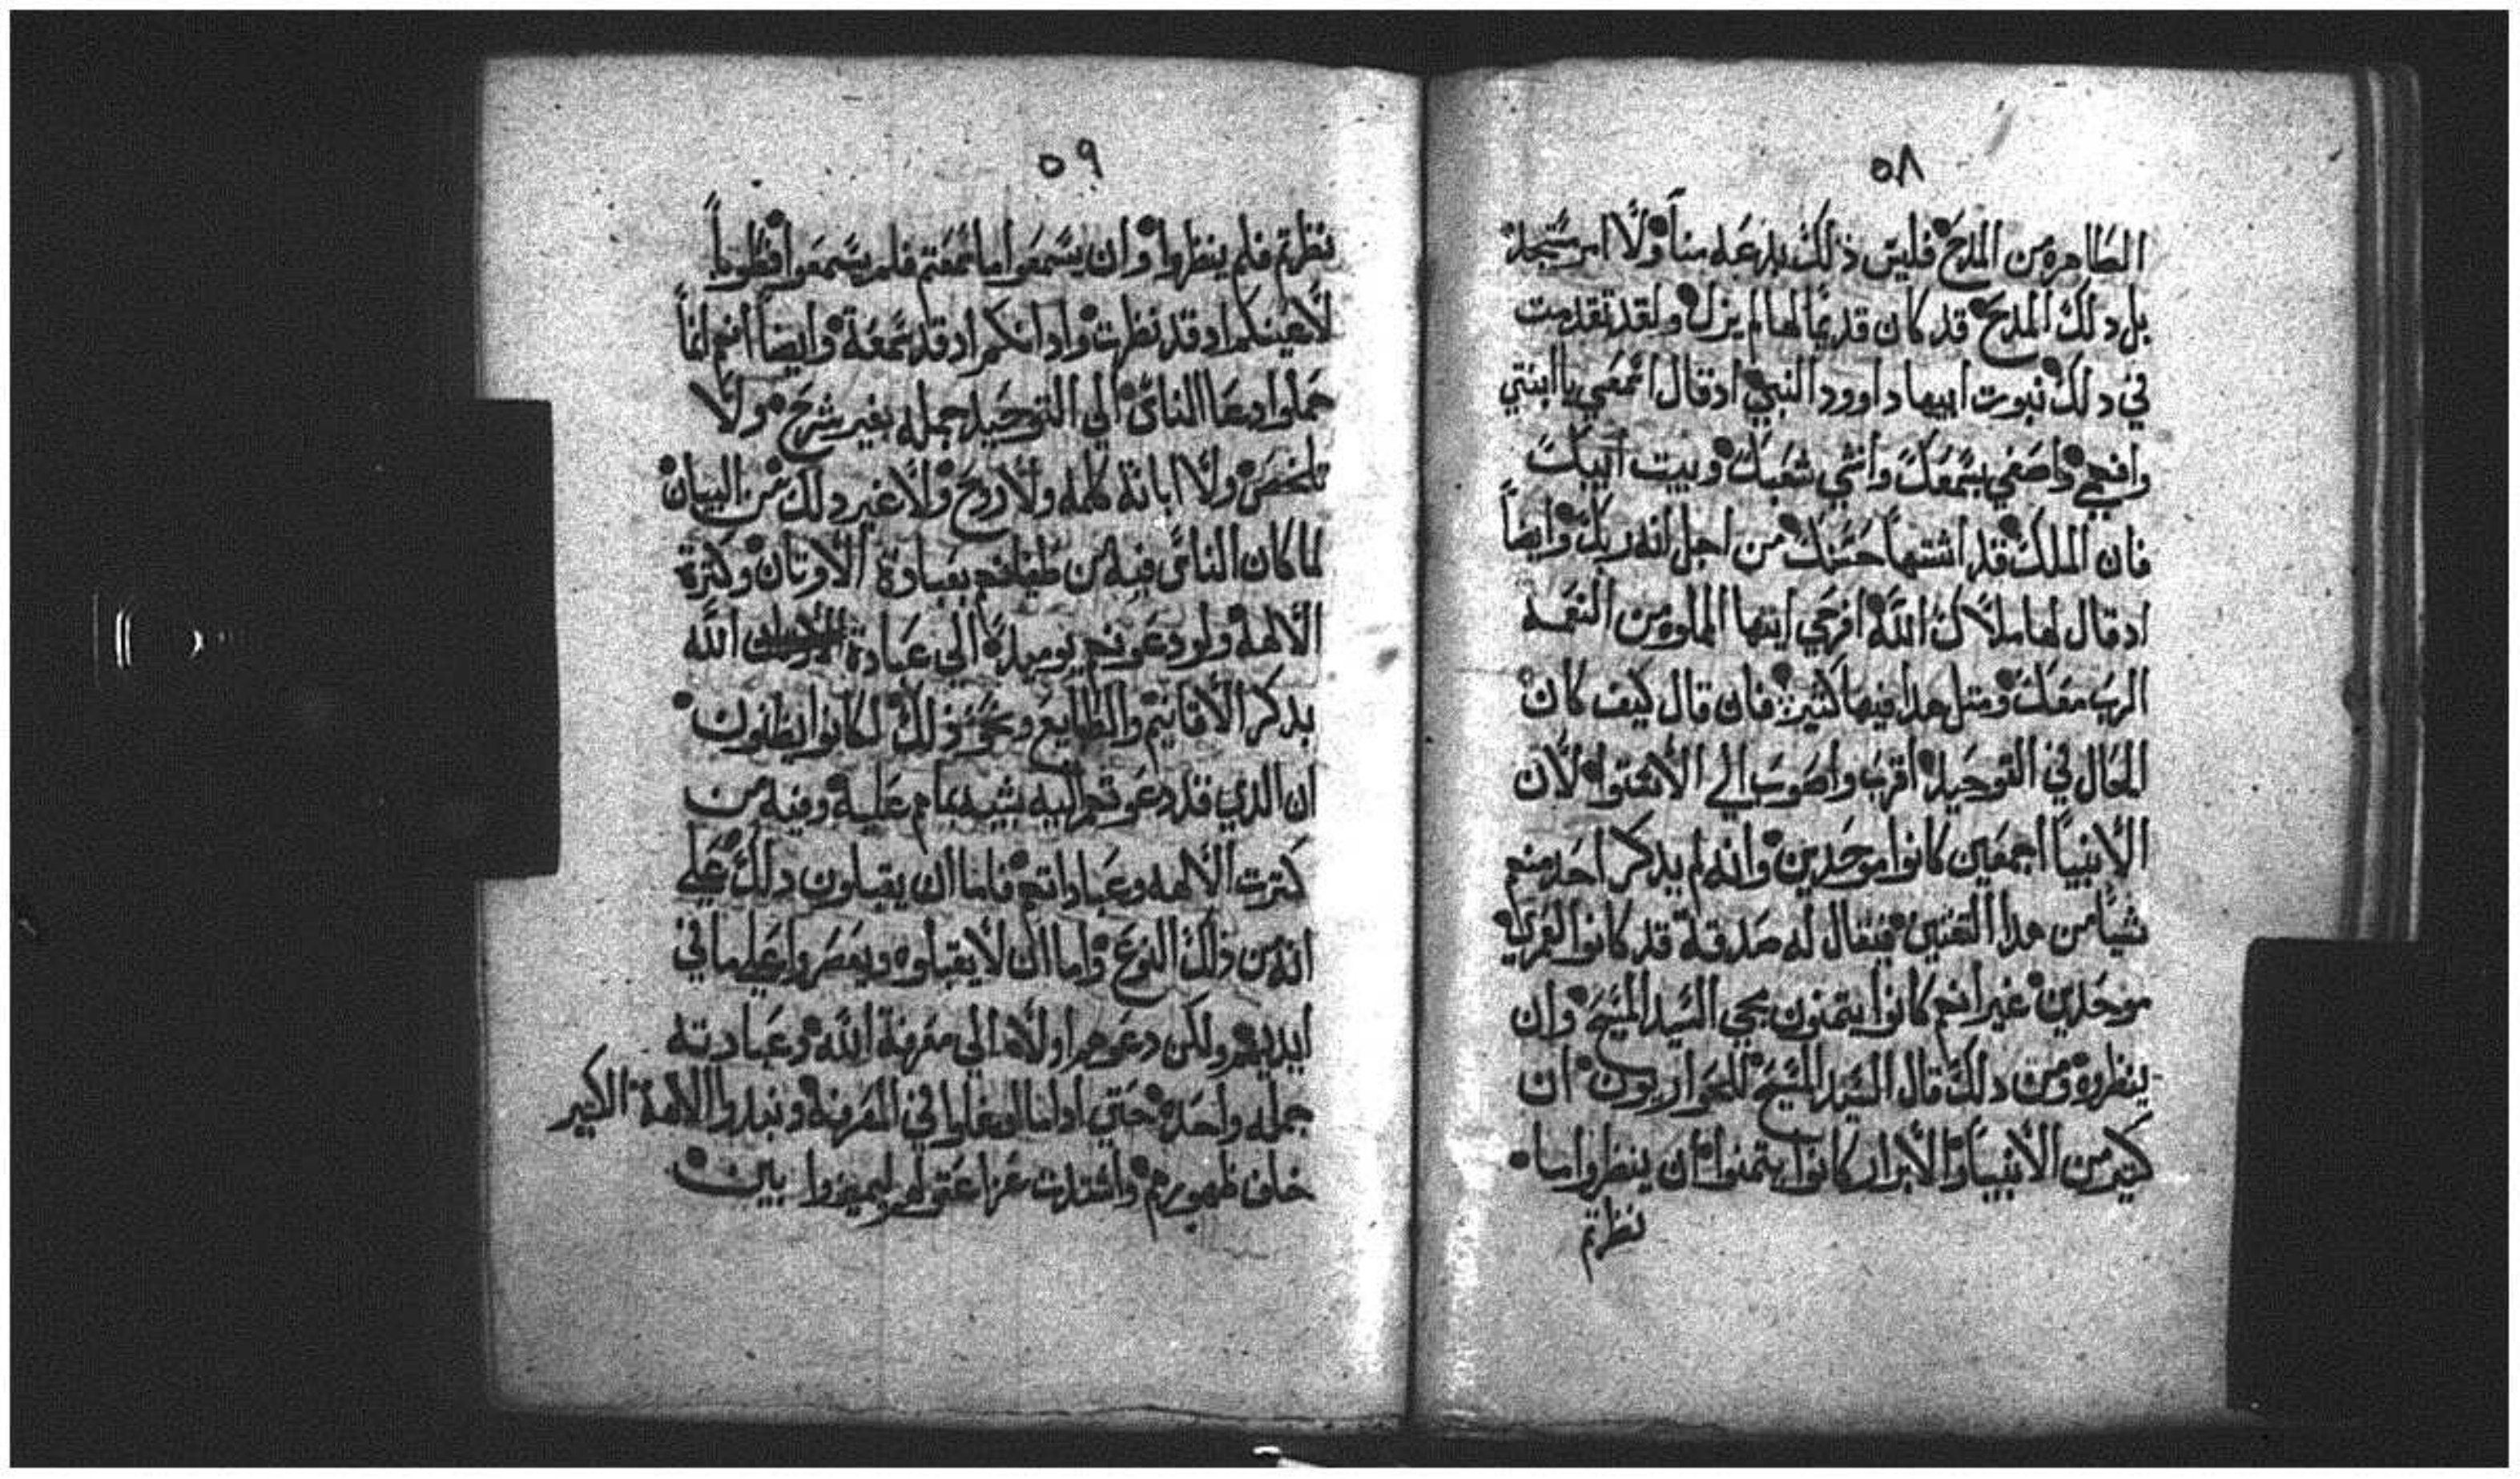 ٥٨
الطاهره من المدح فليس ذلك بدعه منا ولا امر ستجد
بل دلك المدح قد كان قديما لها لم يزل ولقد تقدمت
في دلك نبوت ابيها داوود النبي ادقال اسمعي يا ابنتي
وانضري واصغي بسمعك وانسي شعبك وبيت ابيك
فان الملك قد اشتها حسنك من اجل انه ربك وايضاً
ادقال لها ملاك الله افرحي ايتها المملوه من النعمه
الرب معك ومتل هدا فيها كثير فان قال كيف كان
الحال في التوحيد اقرب واصوب الي الاستوا لان
الانبيا اجمعين كانوا موحدين وانه لم يدكر احد منهم
شيا من هدا التفنين فيقال له صدقة قد كانوا لعمري
موحدين غير انهم كانوا يتمنون مجي السيد المسيح وان
ينظروه ومن دلك قال السيد المسيح للحواريون ان
كثير من الانبيا والابرار كانوا يتمنوا ان ينظروا ما
نظرتم
٥٩
نظرتم فلم ينظروا وان يسمعوا ما سمعتم فلم يسمعوا فطوباً
لاعينكم ادقد نظرت وادانكم ادقد سمعة وايضاً انهم انما
حملوا دعا الناس الي التوحيد جمله بغير شرح ولا
تلخص ولا ابانة كلمه ولا روح ولا غير دلك من البيان
لما كان الناس فيه من طغيانهم بعبادة الاوتان وكترة
الالهة ولو دعوتهم يوميد الي عبادة الله
بدكر الاقانيم والطبايع ونحو ذلك لكانوا يظنون
ان الدي قد دعوتهم اليه شبيه بما هم عليه وفيه من
كترت الالهه وعباداتهم فاما ان يقبلون دلك علي
انه من ذلك النوع واما ان لا يقبلوه ويقصروا علي ما في
ايديهم ولكن دعوهم اولا الي معرفة الله وعبادته
جمله واحده حتي اداما توغلوا في المعرفة ونبدوا الالهة الكبير
خلف ظهورهم واشتدت غزا عقولهم ليميزوا بين